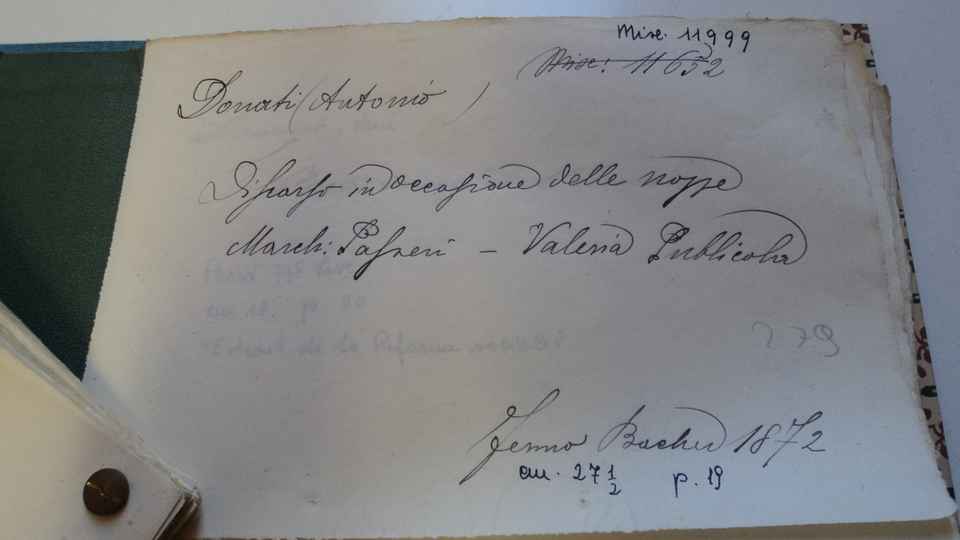 Misc. 11999
Misc: 11652
Donati (Antonio)
Discorso in occasione delle nozze
March: Passeri - Valeria Publicola
Fermo Bacher 1872
cm. 27 1/2 p. 19
279